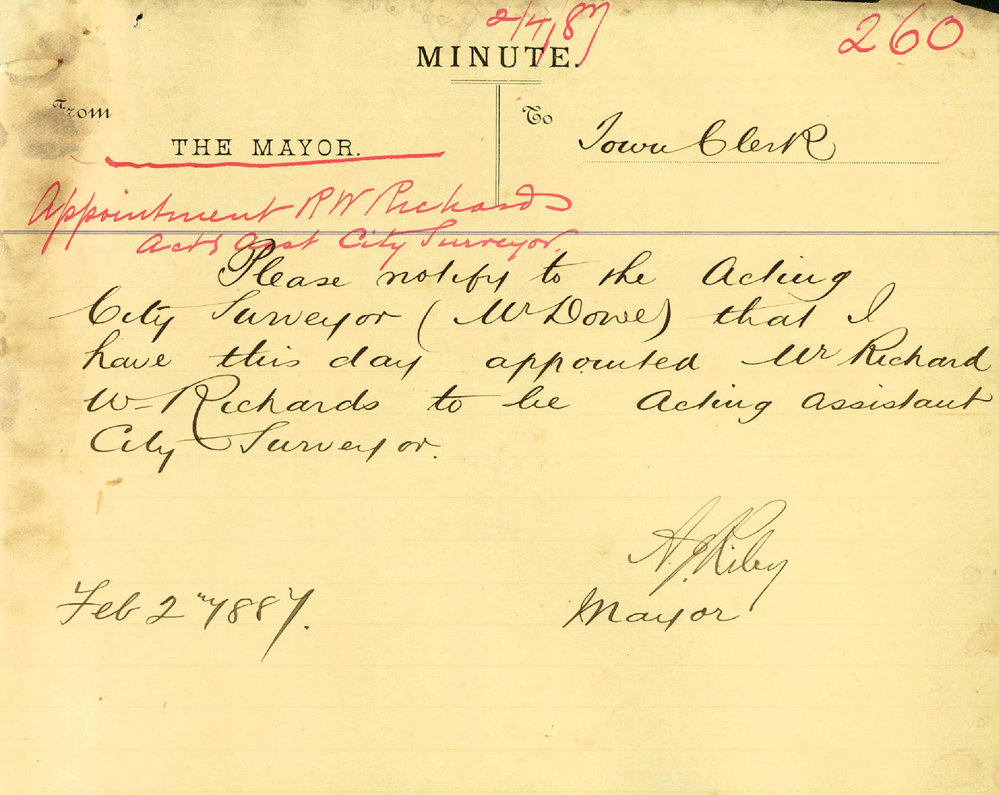 2/4/87
260
MINUTE.
From
To
THE MAYOR.
Town Clerk
Appointment R W Richards
Actg Asst City Surveyor
Please notify to the Acting
City Surveyor (Mr Dowe) that I
have this day appointed Mr Richard
W Richards to be Acting Assistant
City Surveyor.
A.J. Riley
Mayor
Feb 2nd 1887.